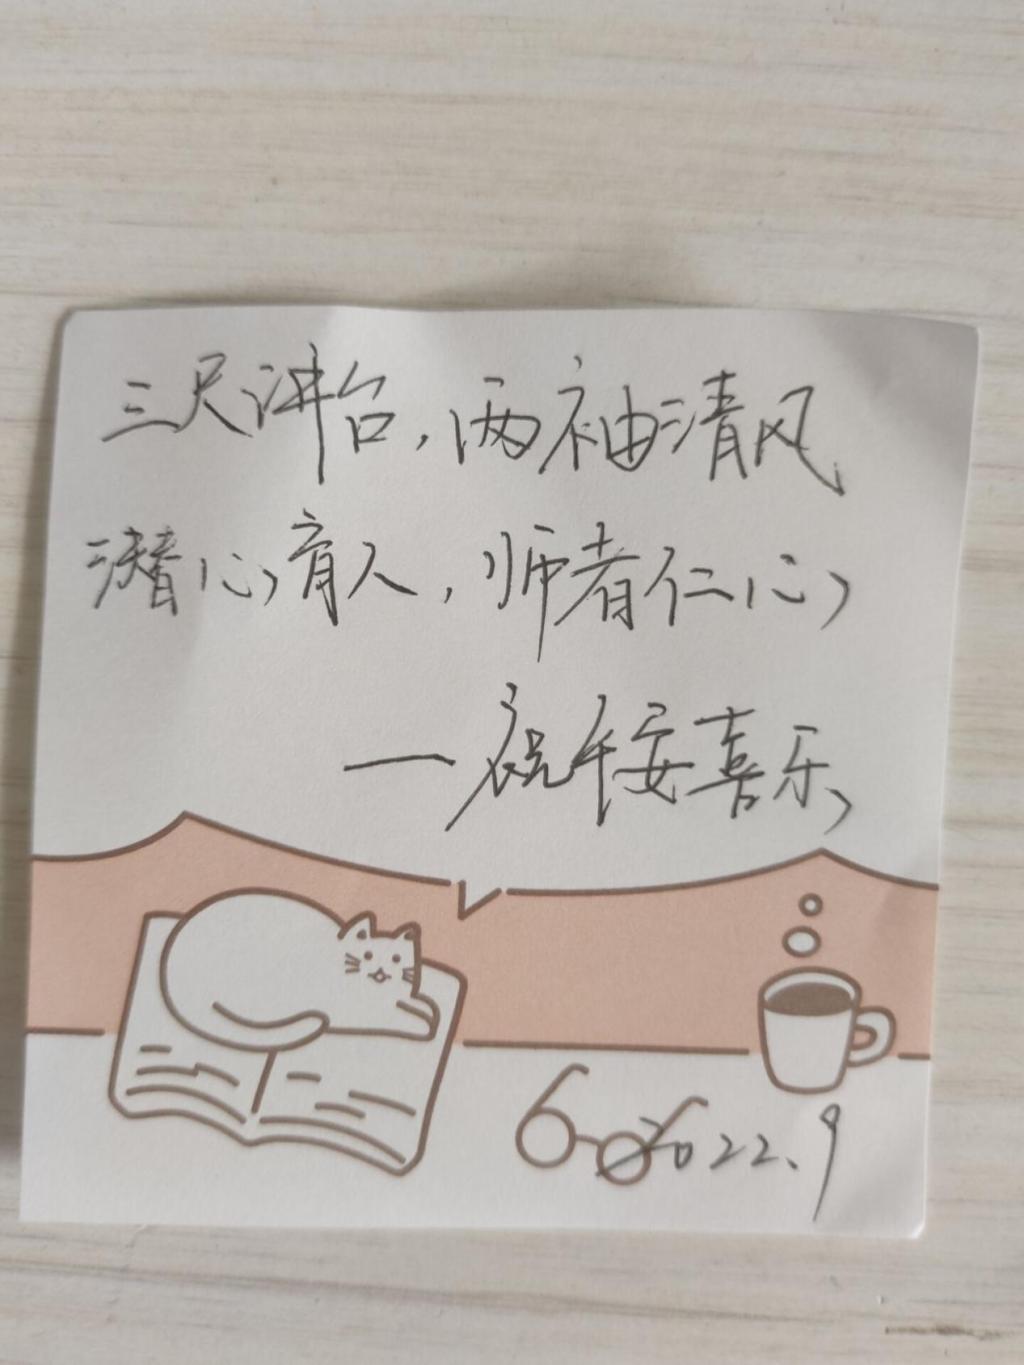 三尺讲台，两袖清风
潜心育人，师者仁心
一祝年安喜乐
2022.9